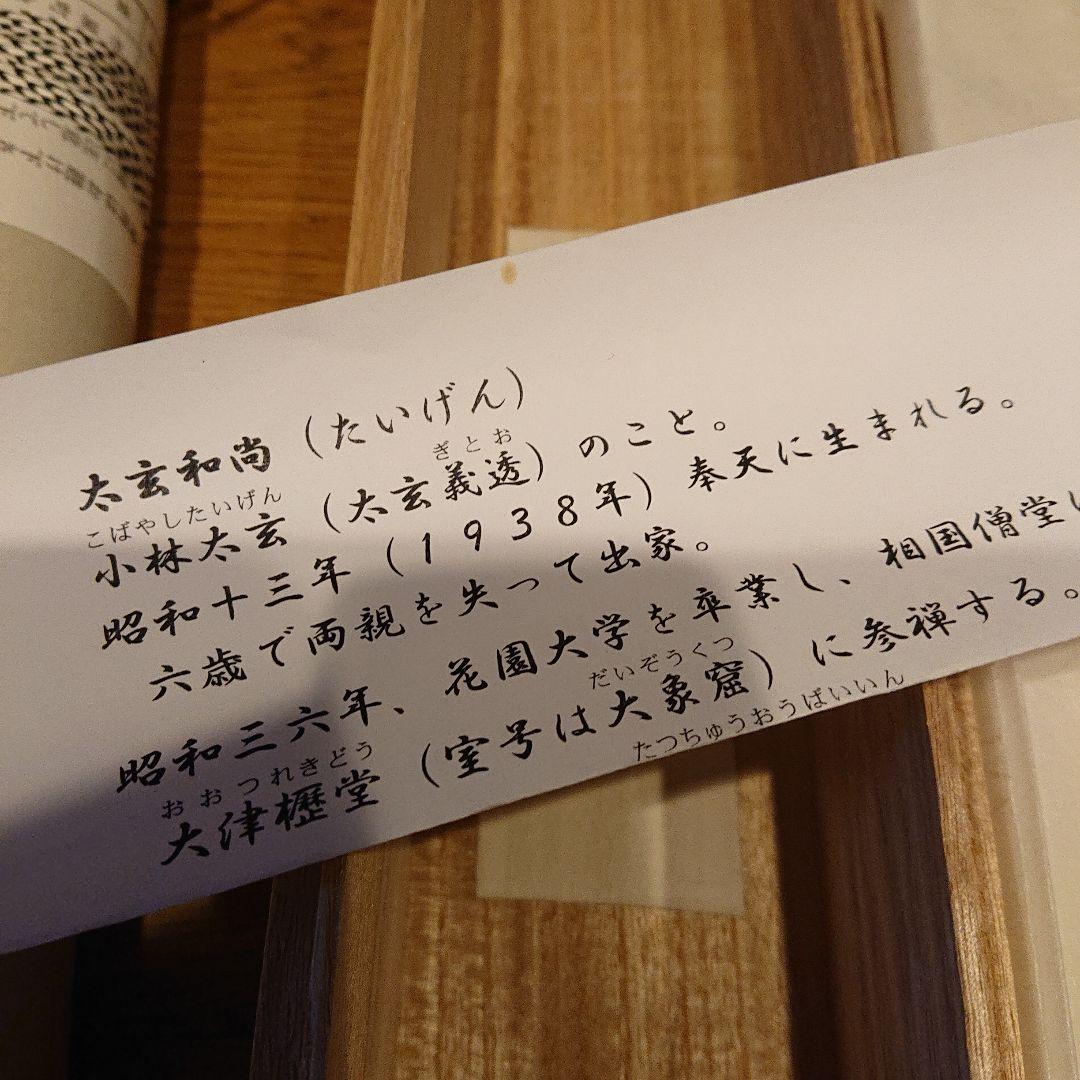 太玄和尚（たいげん）
こばやしたいげん ぎとお
小林太玄（太玄義透）のこと。
昭和十三年（1938年）奉天に生まれる。
六歳で両親を失って出家。
昭和三六年、花園大学を卒業し、相国僧堂
おおつれきどう だいぞうくつ
大津櫪堂（室号は大象窟）に参禅する。
たっちゅうおうばいいん